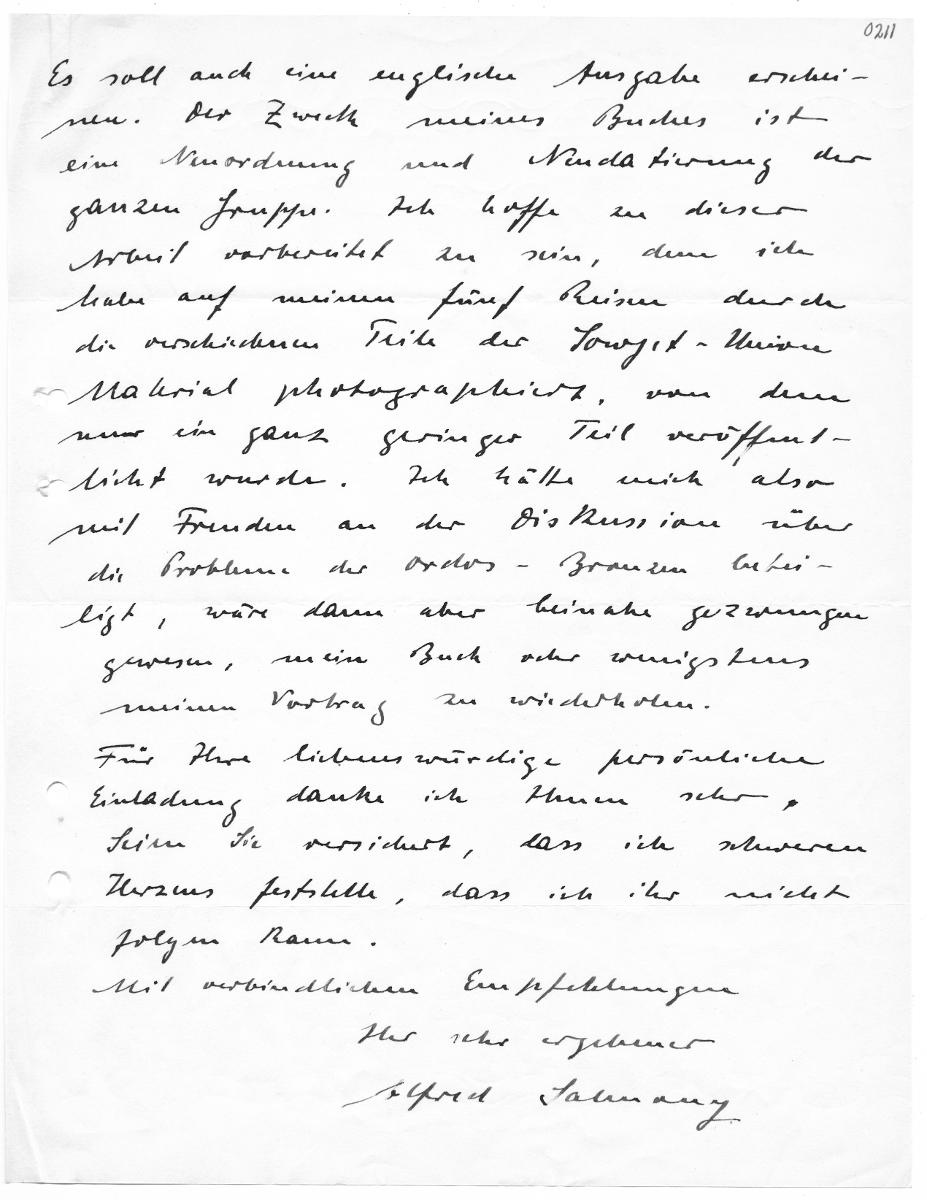 0211
Es soll auch eine englische Ausgabe erschei-
nen. Der Zweck meines Buches ist
eine Neuordnung und Neudatierung der
ganzen Gruppe. Ich hoffe zu dieser
Arbeit vorbereitet zu sein, denn ich
habe auf meinen fünf Reisen durch
die verschiedenen Teile der Sowjet-Union
Material photographiert, von dem
nur ein ganz geringer Teil veröffent-
licht wurde. Ich hätte mich also
mit Freuden an der Diskussion über
die Probleme der Ordos-Bronzen betei-
ligt, wäre dann aber beinahe gezwungen
gewesen, mein Buch oder wenigstens
meinen Vortrag zu wiederholen.
Für Ihre liebenswürdige persönliche
Einladung danke ich Ihnen sehr.
Seien Sie versichert, dass ich schweren
Herzens feststelle, dass ich ihr nicht
folgen kann.
Mit verbindlichen Empfehlungen
Ihr sehr ergebener
Alfred Salmony